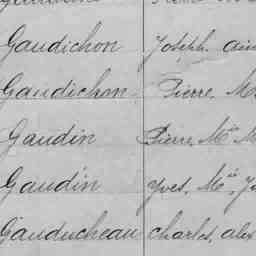 Gaudichon Joseph
Gaudichon Pierre
Gaudin Pierre, M^ie
Gaudin Yves, M^ie
Gauducheau Charles, alex